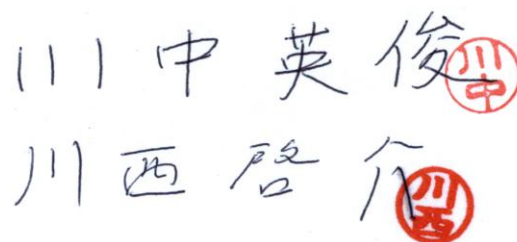 川中英俊 川中
川西啓介 川西